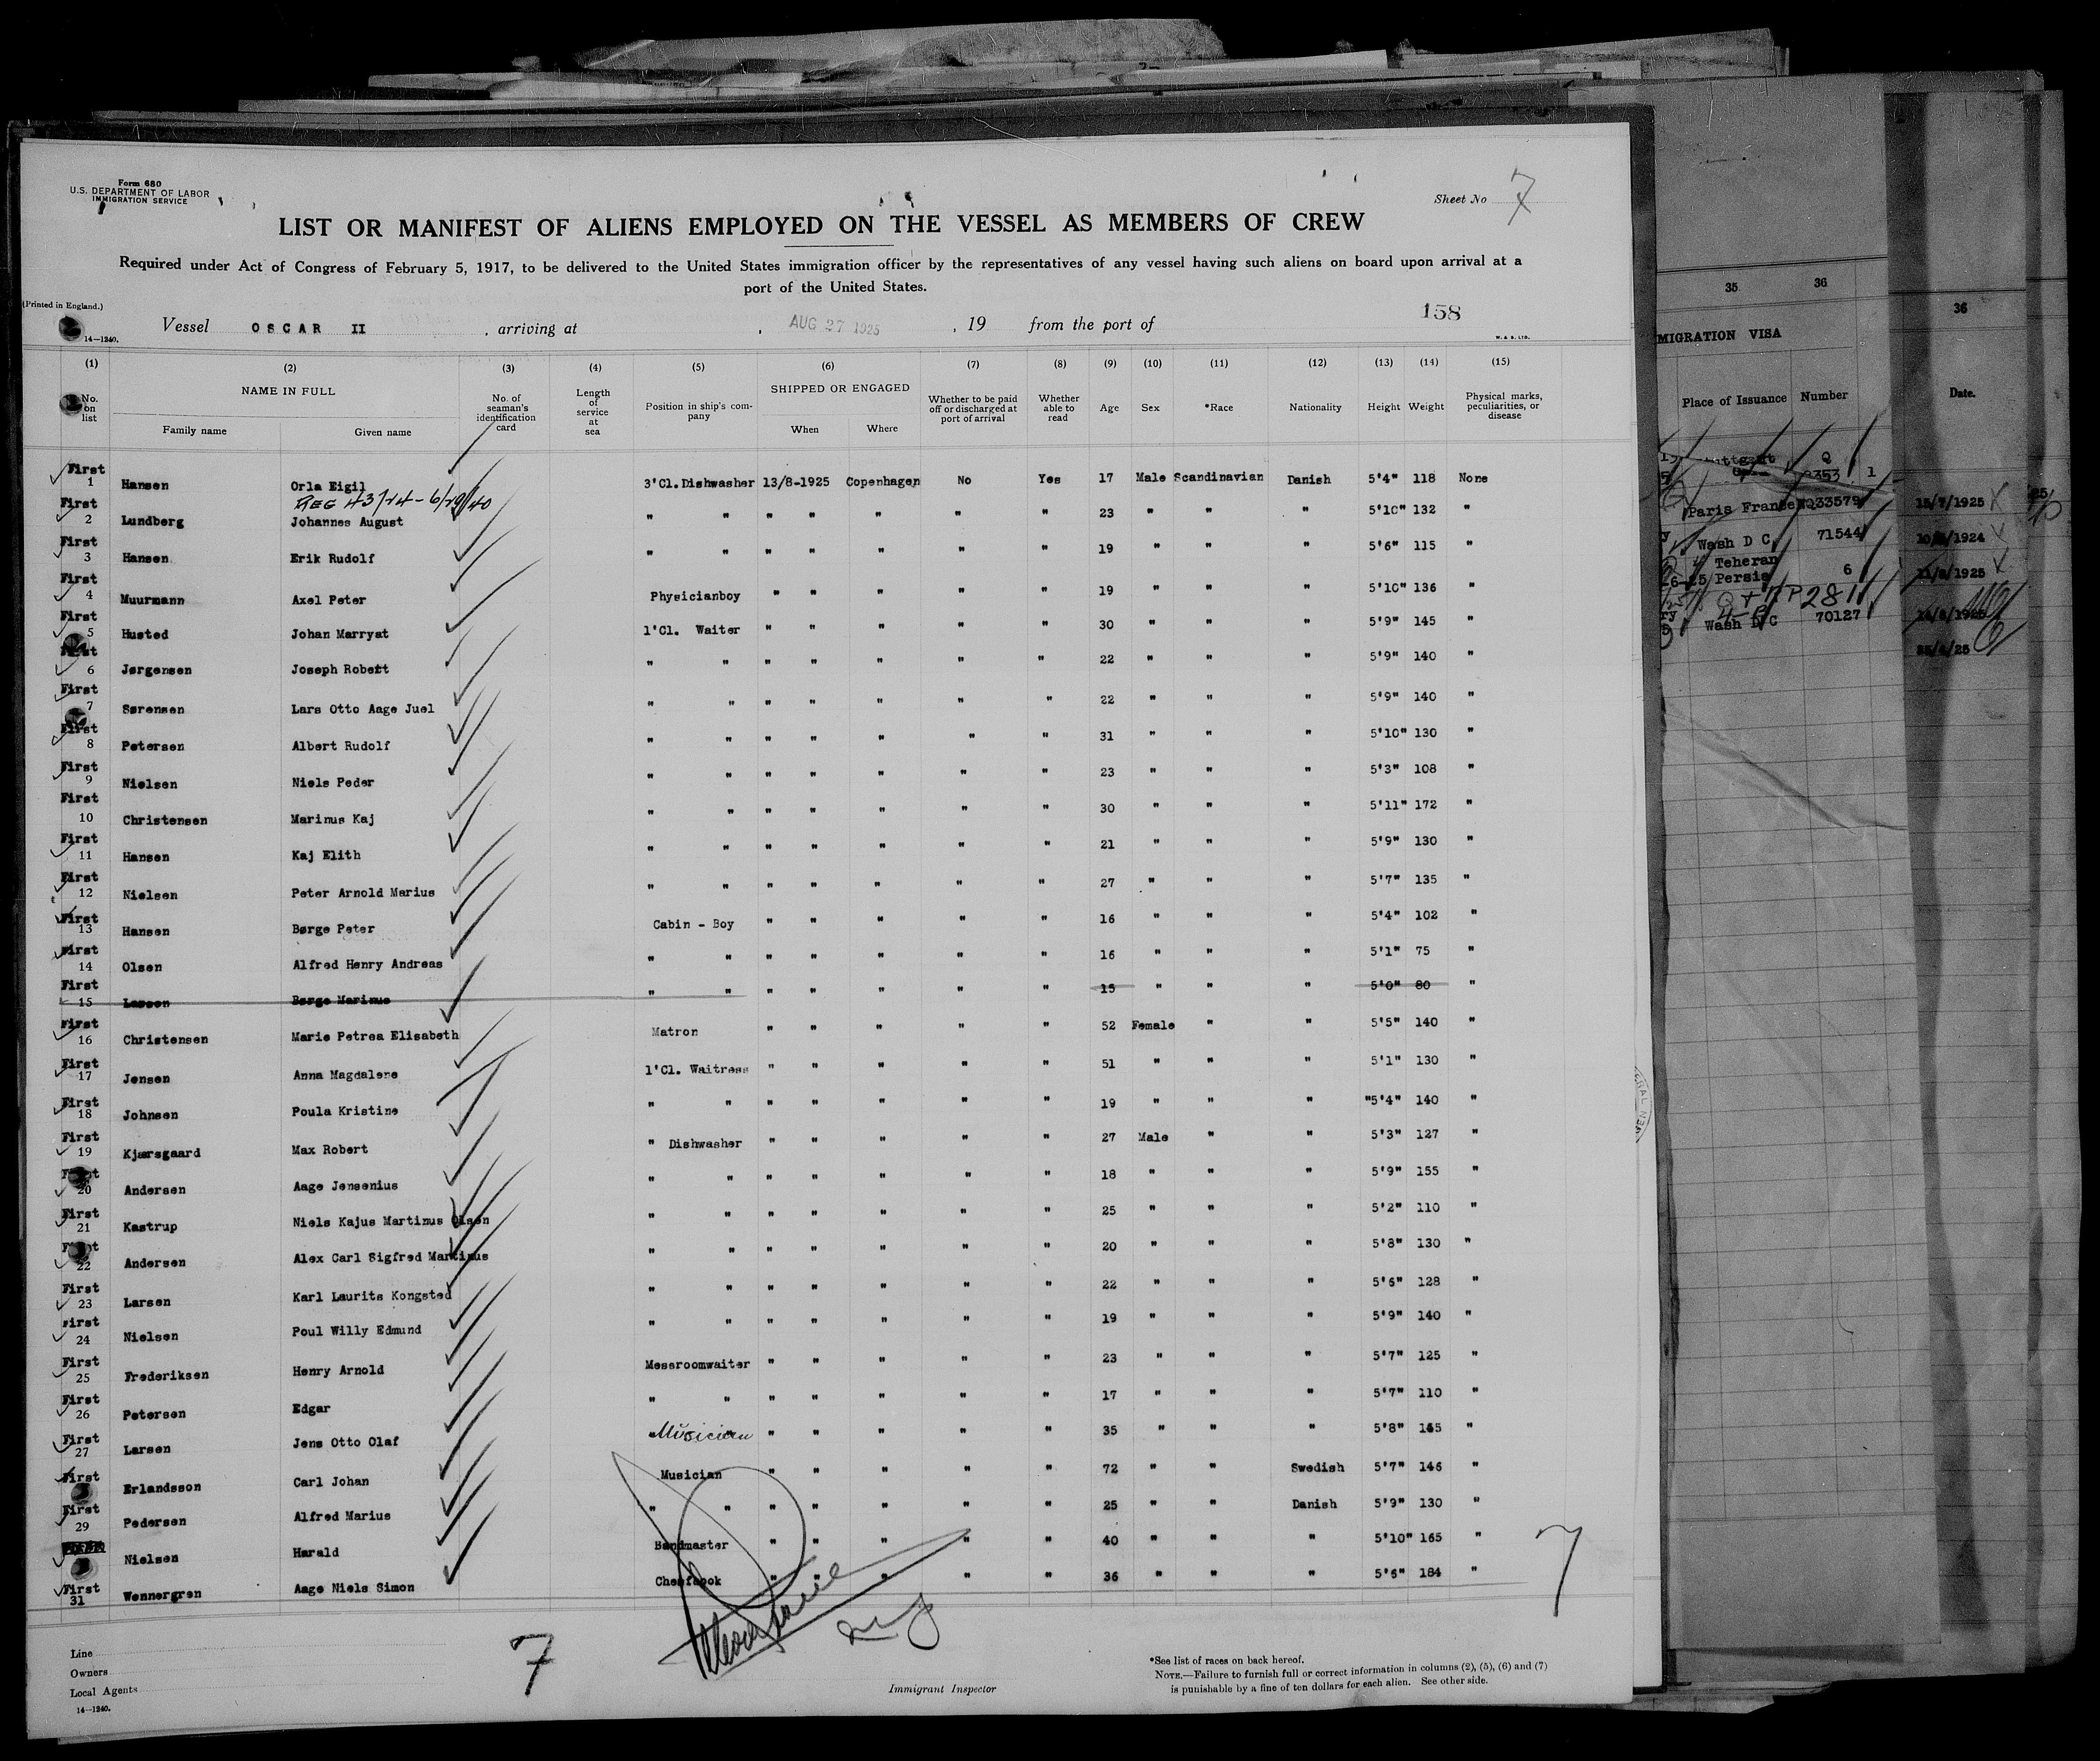 Form 680
U.S. DEPARTMENT OF LABOR
IMMIGRATION SERVICE
Sheet No 7
LIST OR MANIFEST OF ALIENS EMPLOYED ON THE VESSEL AS MEMBERS OF CREW
Required under Act of Congress of February 5, 1917, to be delivered to the United States immigration officer by the representatives of any vessel having such aliens on board upon arrival at a
port of the United States.
(Printed in England.)
158
Vessel OSCAR II , arriving at , AUG 27 1925 , 19 from the port of
14—1240.
W. & S. LTD.
(1) (2) (3) (4) (5) (6) (7) (8) (9) (10) (11) (12) (13) (14) (15)
No. on list NAME IN FULL Family name Given name No. of seaman's identification card Length of service at sea Position in ship's company SHIPPED OR ENGAGED When Where Whether to be paid off or discharged at port of arrival Whether able to read Age Sex *Race Nationality Height Weight Physical marks, peculiarities, or disease
First 1 Hansen Orla Eigil 3'Cl.Dishwasher 13/8-1925 Copenhagen No Yes 17 Male Scandinavian Danish 5'4" 118 None
First 2 Lundberg Johannes August " " " " " " " 23 " " " 5'10" 132 "
First 3 Hansen Erik Rudolf " " " " " " " 19 " " " 5'6" 115 "
First 4 Muurmann Axel Peter Physicianboy " " " " " 19 " " " 5'10" 136 "
First 5 Husted Johan Marryat 1'Cl. Waiter " " " " " 30 " " " 5'9" 145 "
First 6 Jørgensen Joseph Robert " " " " " " " 22 " " " 5'9" 140 "
First 7 Sørensen Lars Otto Aage Juel " " " " " " " 22 " " " 5'9" 140 "
First 8 Petersen Albert Rudolf " " " " " " " 31 " " " 5'10" 130 "
First 9 Nielsen Niels Peder " " " " " " " 23 " " " 5'3" 108 "
First 10 Christensen Marinus Kaj " " " " " " " 30 " " " 5'11" 172 "
First 11 Hansen Kaj Elith " " " " " " " 21 " " " 5'9" 130 "
First 12 Nielsen Peter Arnold Marius " " " " " " " 27 " " " 5'7" 135 "
First 13 Hansen Børge Peter Cabin - Boy " " " " " 16 " " " 5'4" 102 "
First 14 Olsen Alfred Henry Andreas " " " " " " " 16 " " " 5'1" 75 "
First 15 Larsen Børge Marinus " " " " " " " 15 " " " 5'0" 80 "
First 16 Christensen Marie Petrea Elisabeth Matron " " " " " 52 Female " " 5'5" 140 "
First 17 Jensen Anna Magdalene 1'Cl. Waitress " " " " " 51 " " " 5'1" 130 "
First 18 Johnsen Poula Kristine " " " " " " " 19 " " " "5'4" 140 "
First 19 Kjærsgaard Max Robert " Dishwasher " " " " " 27 Male " " 5'3" 127 "
20 Andersen Aage Jensenius " " " " " " " 18 " " " 5'9" 155 "
First 21 Kastrup Niels Kajus Martinus Olsen " " " " " " " 25 " " " 5'2" 110 "
22 Andersen Alex Carl Sigfred Martinus " " " " " " " 20 " " " 5'8" 130 "
First 23 Larsen Karl Laurits Kongsted " " " " " " " 22 " " " 5'6" 128 "
First 24 Nielsen Poul Willy Edmund " " " " " " " 19 " " " 5'9" 140 "
First 25 Frederiksen Henry Arnold Messroomwaiter " " " " " 23 " " " 5'7" 125 "
First 26 Petersen Edgar " " " " " " " 17 " " " 5'7" 110 "
First 27 Larsen Jens Otto Olaf Musician " " " " " 35 " " " 5'8" 165 "
First Erlandsson Carl Johan Musician " " " " " 72 " " Swedish 5'7" 146 "
First 29 Pedersen Alfred Marius " " " " " " " 25 " " Danish 5'9" 130 "
Nielsen Harald Bandmaster " " " " " 40 " " " 5'10" 165 "
First 31 Wennergren Aage Niels Simon Chefcook " " " " " 36 " " " 5'6" 184 "
7
7
Line
Owners
Local Agents
14—1240.
Immigrant Inspector
*See list of races on back hereof.
NOTE.—Failure to furnish full or correct information in columns (2), (5), (6) and (7)
is punishable by a fine of ten dollars for each alien. See other side.
35 36
MIGRATION VISA
Place of Issuance Number
Paris France
71544
Wash D C
Teheran
Persia 6
Wash D C 70127
36
Date.
15/7/1925